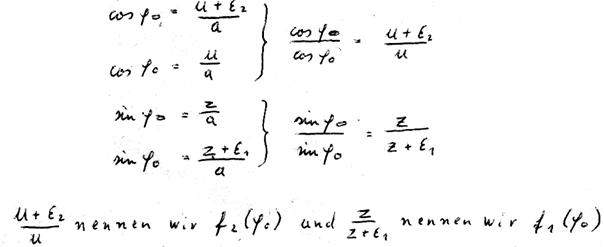 cos φ₀ = (u + ε₂)/a
cos φ₀ = u/a
} cos φ₀/cos φ₀ = (u + ε₂)/u
sin φ₀ = z/a
sin φ₀ = (z + ε₁)/a
} sin φ₀/sin φ₀ = z/(z + ε₁)
(u + ε₂)/u nennen wir f₂(φ₀) und z/(z + ε₁) nennen wir f₁(φ₀)